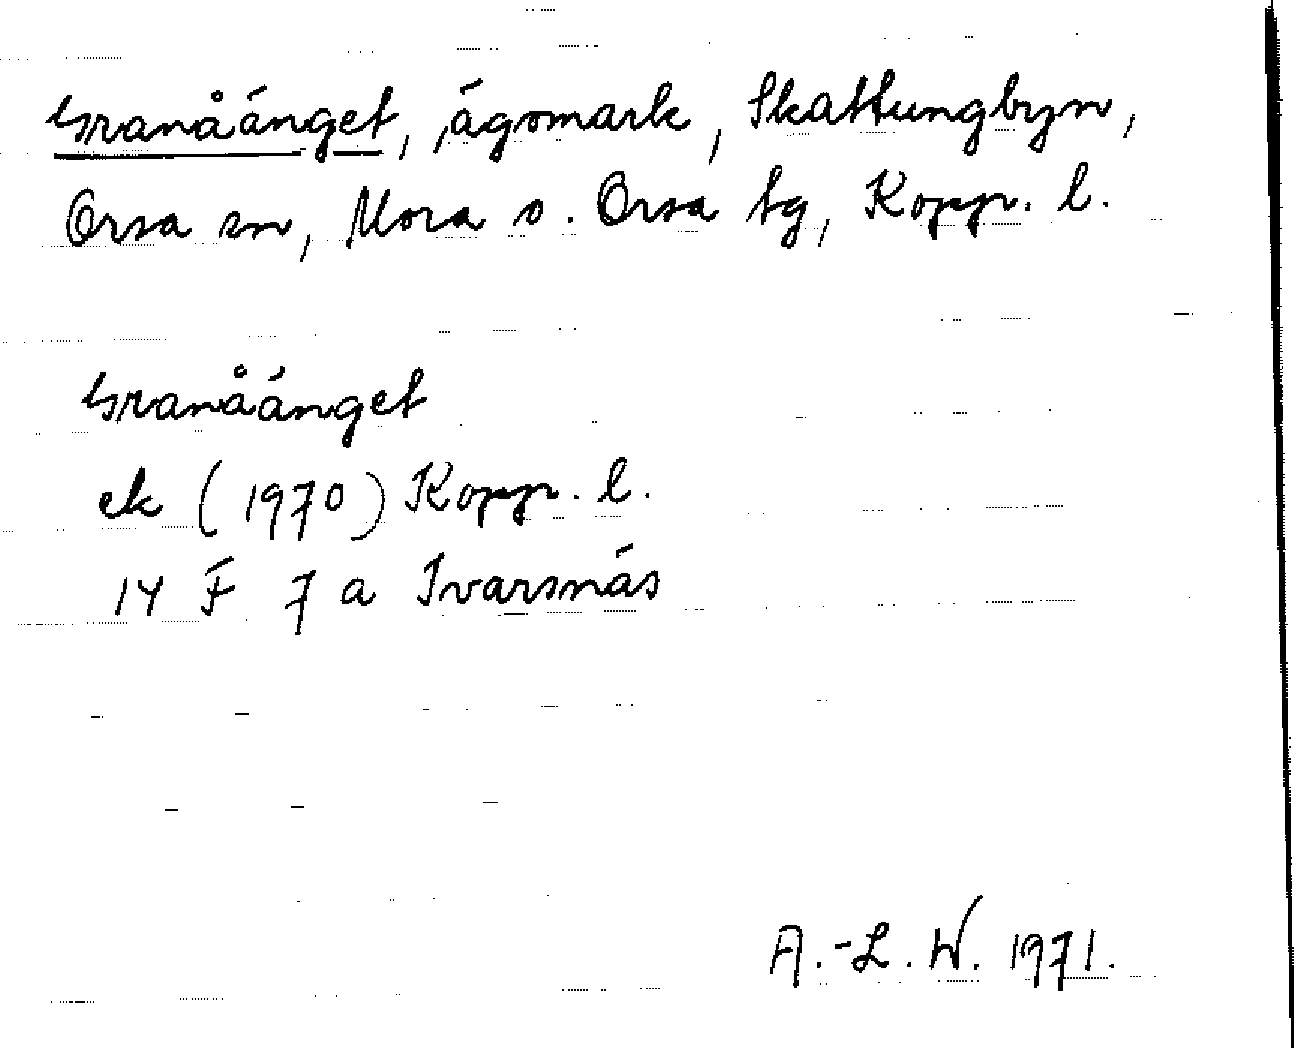 Granåänget, ägomark, Skattungbyn,
Orsa sn, Mora o. Orsa tg, Kopp. l.
Granåänget
ek (1970) Kopp. l.
14 F 7 a Ivarsnäs
A.-L. W. 1971.